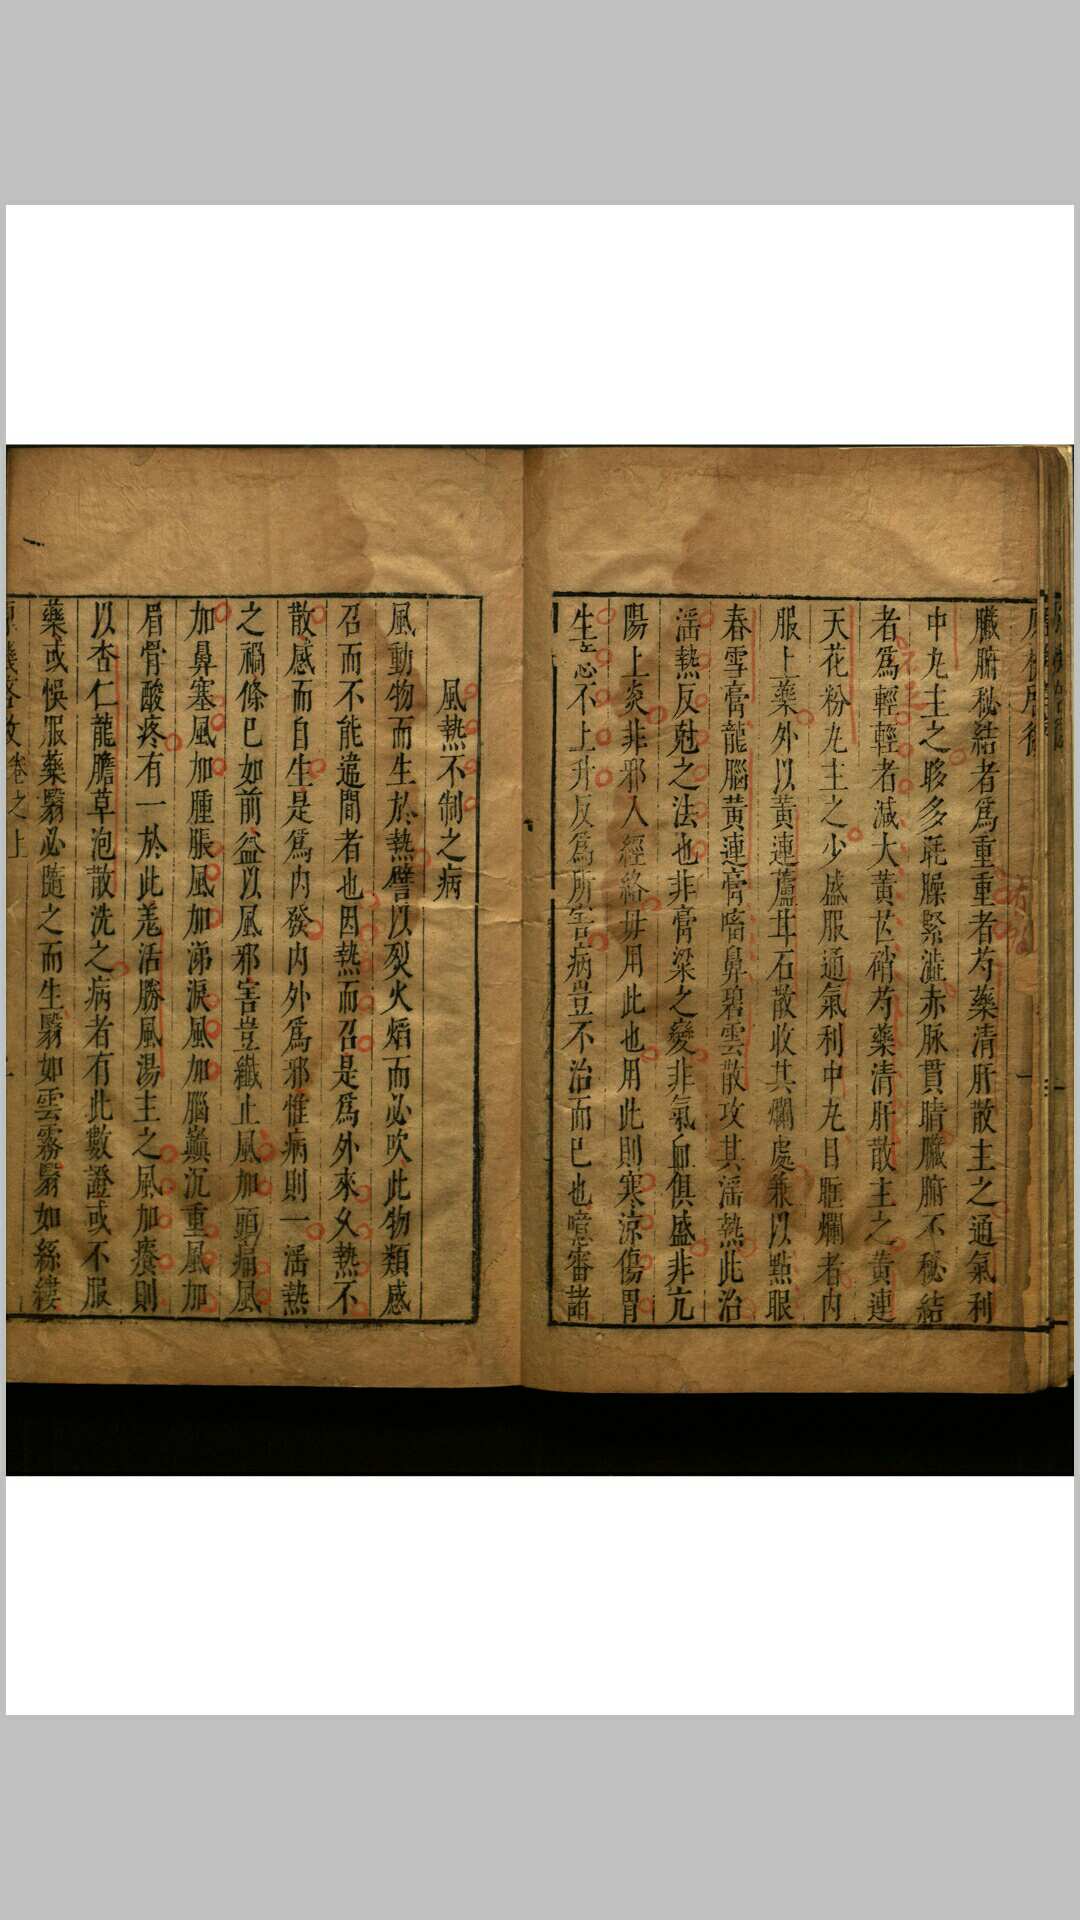 臟腑秘結者爲重重者芍藥清肝散主之通氣利
中丸主之眵多眊臊緊澁赤脉貫睛臟腑不秘結
者爲輕輕者減大黄芒硝芍藥清肝散主之黄連
天花粉丸主之少盛服通氣利中丸目眶爛者内
服上藥外以黄連蘆甘石散收其爛處兼以點眼
春雪膏龍腦黄連膏㗜鼻碧雲散攻其滛熱此治
滛熱反尅之法也非膏粱之變非氣血俱盛非亢
陽上炎非邪入經絡毋用此也用此則寒涼傷胃
生 不上升反爲所害病豈不治而已也噫審諸
風熱不制之病
風動物而生於熱譬以烈火熖而必吹此物類感
召而不能違間者也因熱而召是爲外來久熱不
散感而自生是爲内發内外爲邪惟病則一滛熱
之禍條已如前益以風邪害豈纖止風加頭痛風
加鼻塞風加腫脹風加涕淚風加腦巔沉重風加
眉骨酸疼有一於此羌活勝風湯主之風加癢則
以杏仁龍膽草泡散洗之病者有此數證或不服
藥或悞服藥翳必隨之而生翳如雲霧翳如絲縷
原機啓微卷之上